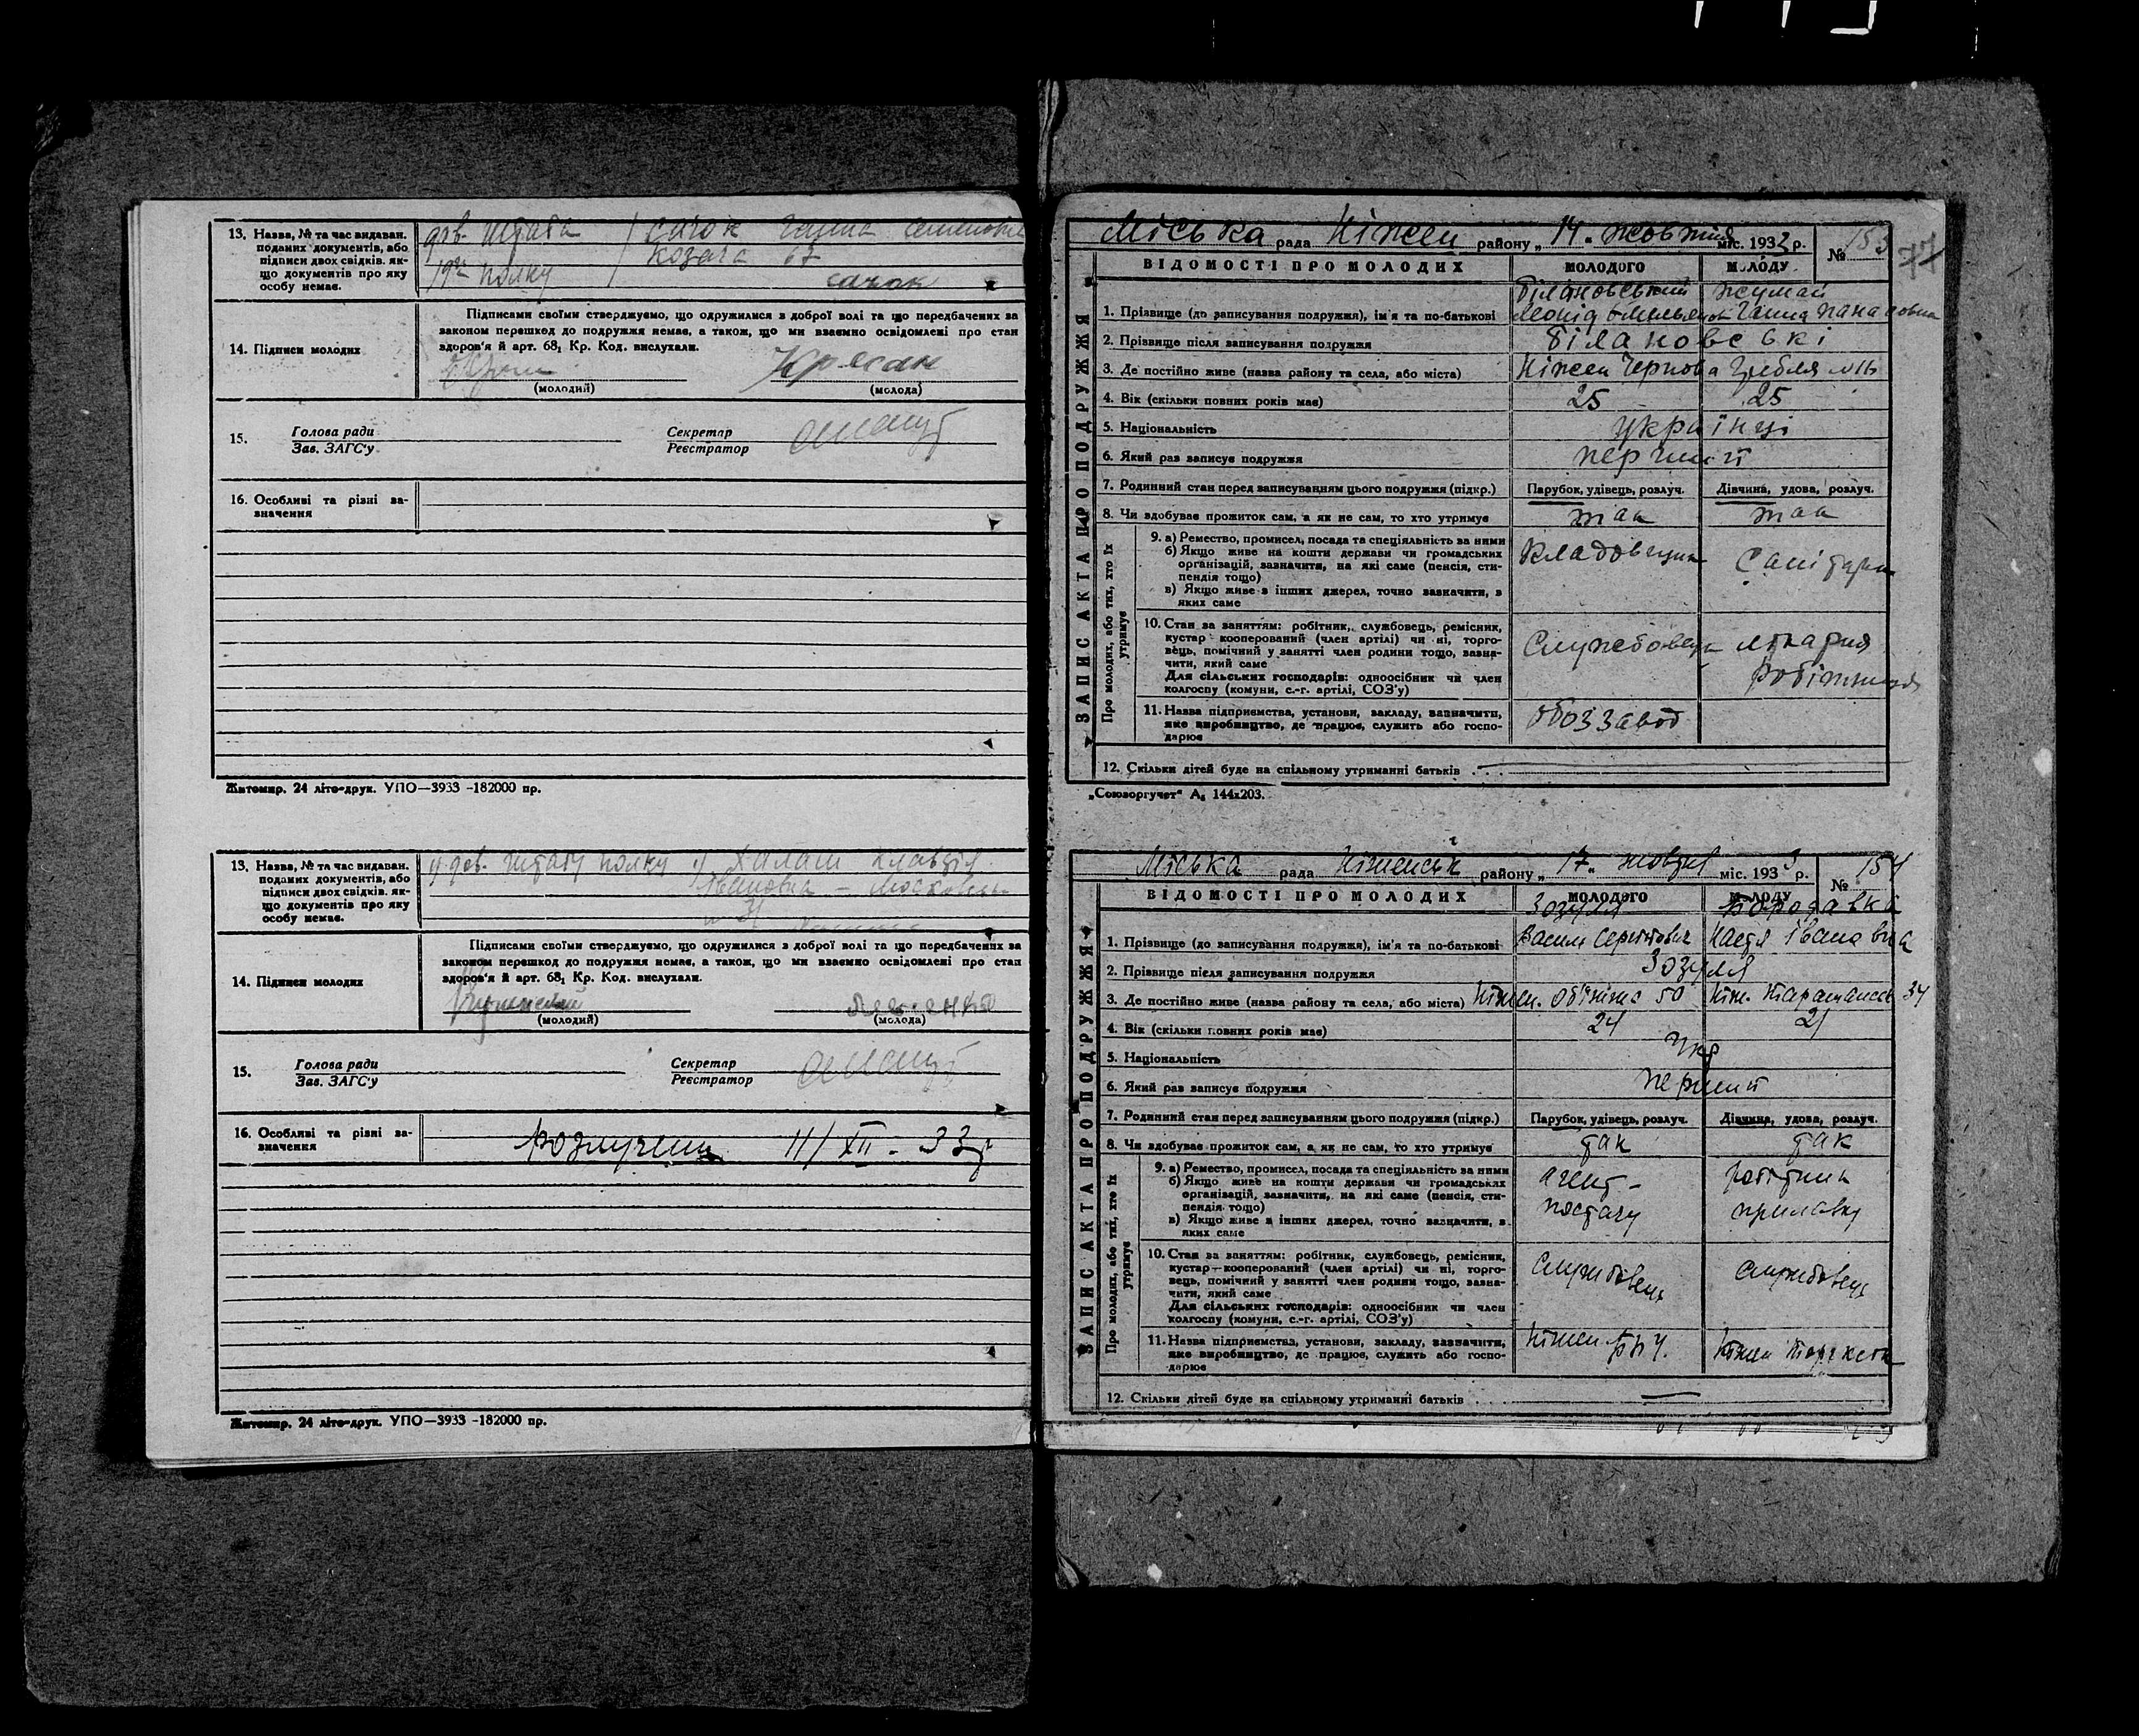 13. Назва, № та час видаван.
поданих документів, або
підписи двох свідків, як-
що документів про яку
особу немає.
дов. штаба
19го полку
Сачок Ганна Семеновна
Козача 67
Сачок
14. Підписи молодих
Підписами своїми стверджуємо, що одружилися з доброї волі та що передбачених за
законом перешкод до подружжя немає, а також, що ми взаємно освідомлені про стан
здоров'я й арт. 68, Кр. Код. вислухали.
(молодий) (молода)
15. Голова ради Секретар
Зав. ЗАГС'у Реєстратор
16. Особливі та різні за-
значення
Житомир. 24 літо-друк. УПО—3933 -182000 пр.
13. Назва, № та час видаван.
поданих документів, або
підписи двох свідків, як-
що документів про яку
особу немає.
дов. штабу полку
Халаш Клавдія
Івановна — Московська
31
14. Підписи молодих
Підписами своїми стверджуємо, що одружилися з доброї волі та що передбачених за
законом перешкод до подружжя немає, а також, що ми взаємно освідомлені про стан
здоров'я й арт. 68, Кр. Код. вислухали.
(молодий) (молода)
15. Голова ради Секретар
Зав. ЗАГС'у Реєстратор
16. Особливі та різні за-
значення
розлучены 11/XII - 33 г
Житомир. 24 літо-друк. УПО—3933 -182000 пр.
Міська рада Ніжен району „ 14 „ жовтня міс. 1933 р. № 153 77
ЗАПИС АКТА ПРО ПОДРУЖЖЯ
ВІДОМОСТІ ПРО МОЛОДИХ МОЛОДОГО МОЛОДУ
1. Прізвище (до записування подружжя), ім'я та по-батькові
Білановський Леонід Омельянов
Жумай Ганна Панасовна
2. Прізвище після записування подружжя Білановські
3. Де постійно живе (назва району та села, або міста) Ніжен Чернова Гребля №16
4. Вік (скільки повних років має) 25 25
5. Національність українці
6. Який раз записує подружжя перший
7. Родинний стан перед записуванням цього подружжя (підкр.) Парубок, удівець, розлуч. Дівчина, удова, розлуч.
8. Чи вдобуває прожиток сам, а як не сам, то хто утримує так так
Про молодих, або тих, хто їх утримує
9. а) Ремество, промисел, посада та спеціяльність за ними
б) Якщо живе на кошти держави чи громадських
організацій, зазначити, на які саме (пенсія, сти-
пендія тощо)
в) Якщо живе з інших джерел, точно зазначити, з
яких саме
Кладовщик Санітарка
10. Стан за заняттям: робітник, службовець, ремісник,
кустар кооперований (член артілі) чи ні, торго-
вець, помічний у занятті член родини тощо, зазна-
чити, який саме
Для сільських господарів: одноосібник чи член
колгоспу (комуни, с.-г. артілі, СОЗ'у)
Службовець лікарня
робітниця
11. Назва підприємства, установи, закладу, вазначити,
яке виробництво, де працює, служить або госпо-
дарює
Обоззавод
12. Скільки дітей буде на спільному утриманні батьків
„Союзоргучет“ А₆ 144х203.
Міська рада Ніженськ району „ 17 „ жовтня міс. 1933 р. № 154
ЗАПИС АКТА ПРО ПОДРУЖЖЯ
ВІДОМОСТІ ПРО МОЛОДИХ МОЛОДОГО МОЛОДУ
1. Прізвище (до записування подружжя), ім'я та по-батькові
Зозуля Василь Сергійович
Бородавка Настя Івановна
2. Прізвище після записування подружжя Зозуля
3. Де постійно живе (назва району та села, або міста) Ніжен. 50 Ніж. 34
4. Вік (скільки повних років має) 24 21
5. Національність Укр
6. Який раз записує подружжя перший
7. Родинний стан перед записуванням цього подружжя (підкр.) Парубок, удівець, розлуч. Дівчина, удова, розлуч.
8. Чи вдобуває прожиток сам, а як не сам, то хто утримує так так
Про молодих, або тих, хто їх утримує
9. а) Ремество, промисел, посада та спеціяльність за ними
б) Якщо живе на кошти держави чи громадських
організацій, зазначити, на які саме (пенсія, сти-
пендія тощо)
в) Якщо живе з інших джерел, точно зазначити, з
яких саме
агент - постачу
робітник прилавку
10. Стан за заняттям: робітник, службовець, ремісник,
кустар—кооперований (член артілі) чи ні, торго-
вець, помічний у занятті член родини тощо, зазна-
чити, який саме
Для сільських господарів: одноосібник чи член
колгоспу (комуни, с.-г. артілі, СОЗ'у)
Службовець Службовець
11. Назва підприємства, установи, закладу, вазначити,
яке виробництво, де працює, служить або госпо-
дарює
Ніжен. Ніжен
12. Скільки дітей буде на спільному утриманні батьків